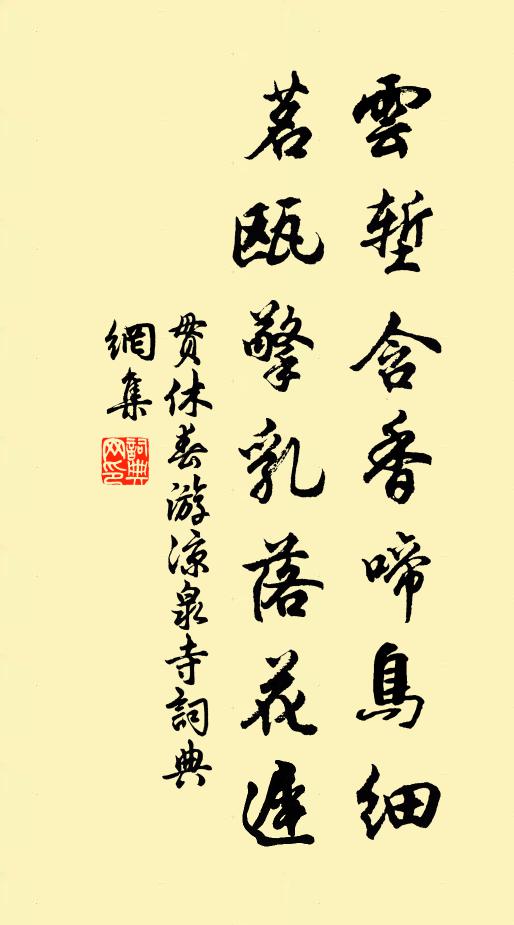 雲塹含香啼鳥細
茗甌擎乳落花遲
貫休春游涼泉寺詞典
網集
詞典網印